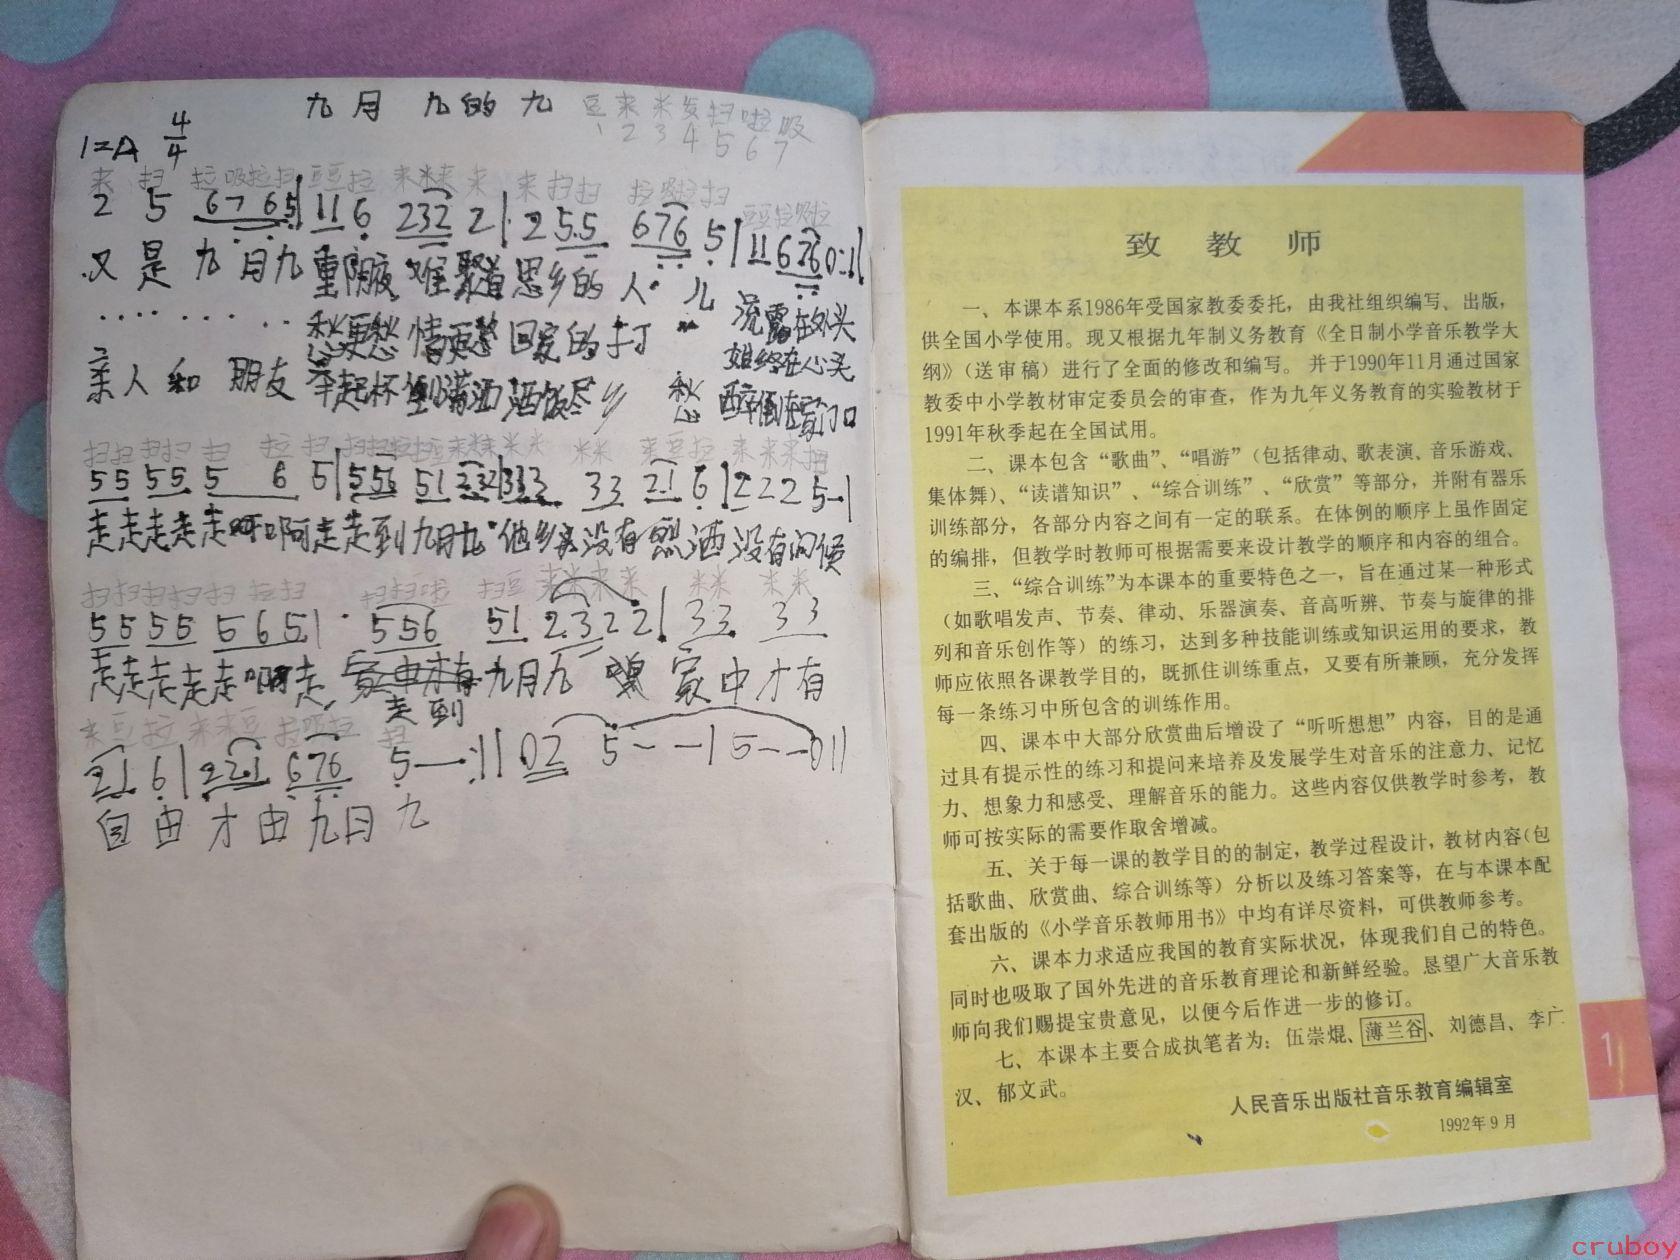 九月 九的九
豆 来 米 发 扫 啦 吸
1 2 3 4 5 6 7
1=A 4/4
2 5 67 65 | 11 6 232 2 | 2 55 676 5 | 11 676 0 :||
又 是 九 月九 重阳夜 难聚首 思乡的 人 儿 流露在外头
愁更愁 情更愁 回家的打
亲人 和 朋友 举起杯 倒满酒 酒饭尽 乡 愁 醉倒在家门口
55 55 5 6 5 | 5 55 51 232 | 333 33 21 6 | 2 2 2 5 - |
走走走走走啊啊走走到九月九 他乡 没有烈酒没有问候
55 55 5 6 5 | 556 51 23 2 2 | 33 33
走走走走走啊走, 家中才有 九月九 家 中 才 有
走到
21 6 | 221 676 5 - :|| 02 5 - - | 5 - - 0 ||
自 由 才 由 九月 九
致 教 师
一、本课本系1986年受国家教委委托，由我社组织编写、出版，
供全国小学使用。现又根据九年制义务教育《全日制小学音乐教学大
纲》（送审稿）进行了全面的修改和编写。 并于1990年11月通过国家
教委中小学教材审定委员会的审查，作为九年义务教育的实验教材于
1991年秋季起在全国试用。
二、课本包含“歌曲”、“唱游”（包括律动、歌表演、音乐游戏、
集体舞）、“读谱知识”、“综合训练”、“欣赏”等部分，并附有器乐
训练部分，各部分内容之间有一定的联系。在体例的顺序上虽作固定
的编排，但教学时教师可根据需要来设计教学的顺序和内容的组合。
三、“综合训练”为本课本的重要特色之一，旨在通过某一种形式
（如歌唱发声、节奏、律动、乐器演奏、音高听辨、节奏与旋律的排
列和音乐创作等）的练习，达到多种技能训练或知识运用的要求，教
师应依照各课教学目的，既抓住训练重点，又要有所兼顾，充分发挥
每一条练习中所包含的训练作用。
四、课本中大部分欣赏曲后增设了“听听想想”内容，目的是通
过具有提示性的练习和提问来培养及发展学生对音乐的注意力、记忆
力、想象力和感受、理解音乐的能力。这些内容仅供教学时参考，教
师可按实际的需要作取舍增减。
五、关于每一课的教学目的的制定，教学过程设计，教材内容（包
括歌曲、欣赏曲、综合训练等）分析以及练习答案等，在与本课本配
套出版的《小学音乐教师用书》中均有详尽资料，可供教师参考。
六、课本力求适应我国的教育实际状况，体现我们自己的特色。
同时也吸取了国外先进的音乐教育理论和新鲜经验。恳望广大音乐教
师向我们赐提宝贵意见，以便今后作进一步的修订。
七、本课本主要合成执笔者为：伍崇焜、薄兰谷、刘德昌、李广
汉、郁文武。
人民音乐出版社音乐教育编辑室
1992年9月
1
cruboy